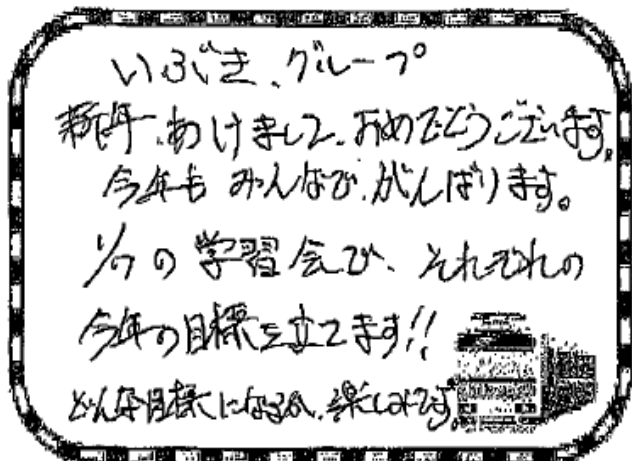 いぶき、グループ
新年、あけまして、おめでとうございます。
今年も みんなで、がんばります。
1/7の 学習会で、それぞれの
今年の目標を立てます!!
どんな目標になるか、楽しみです。